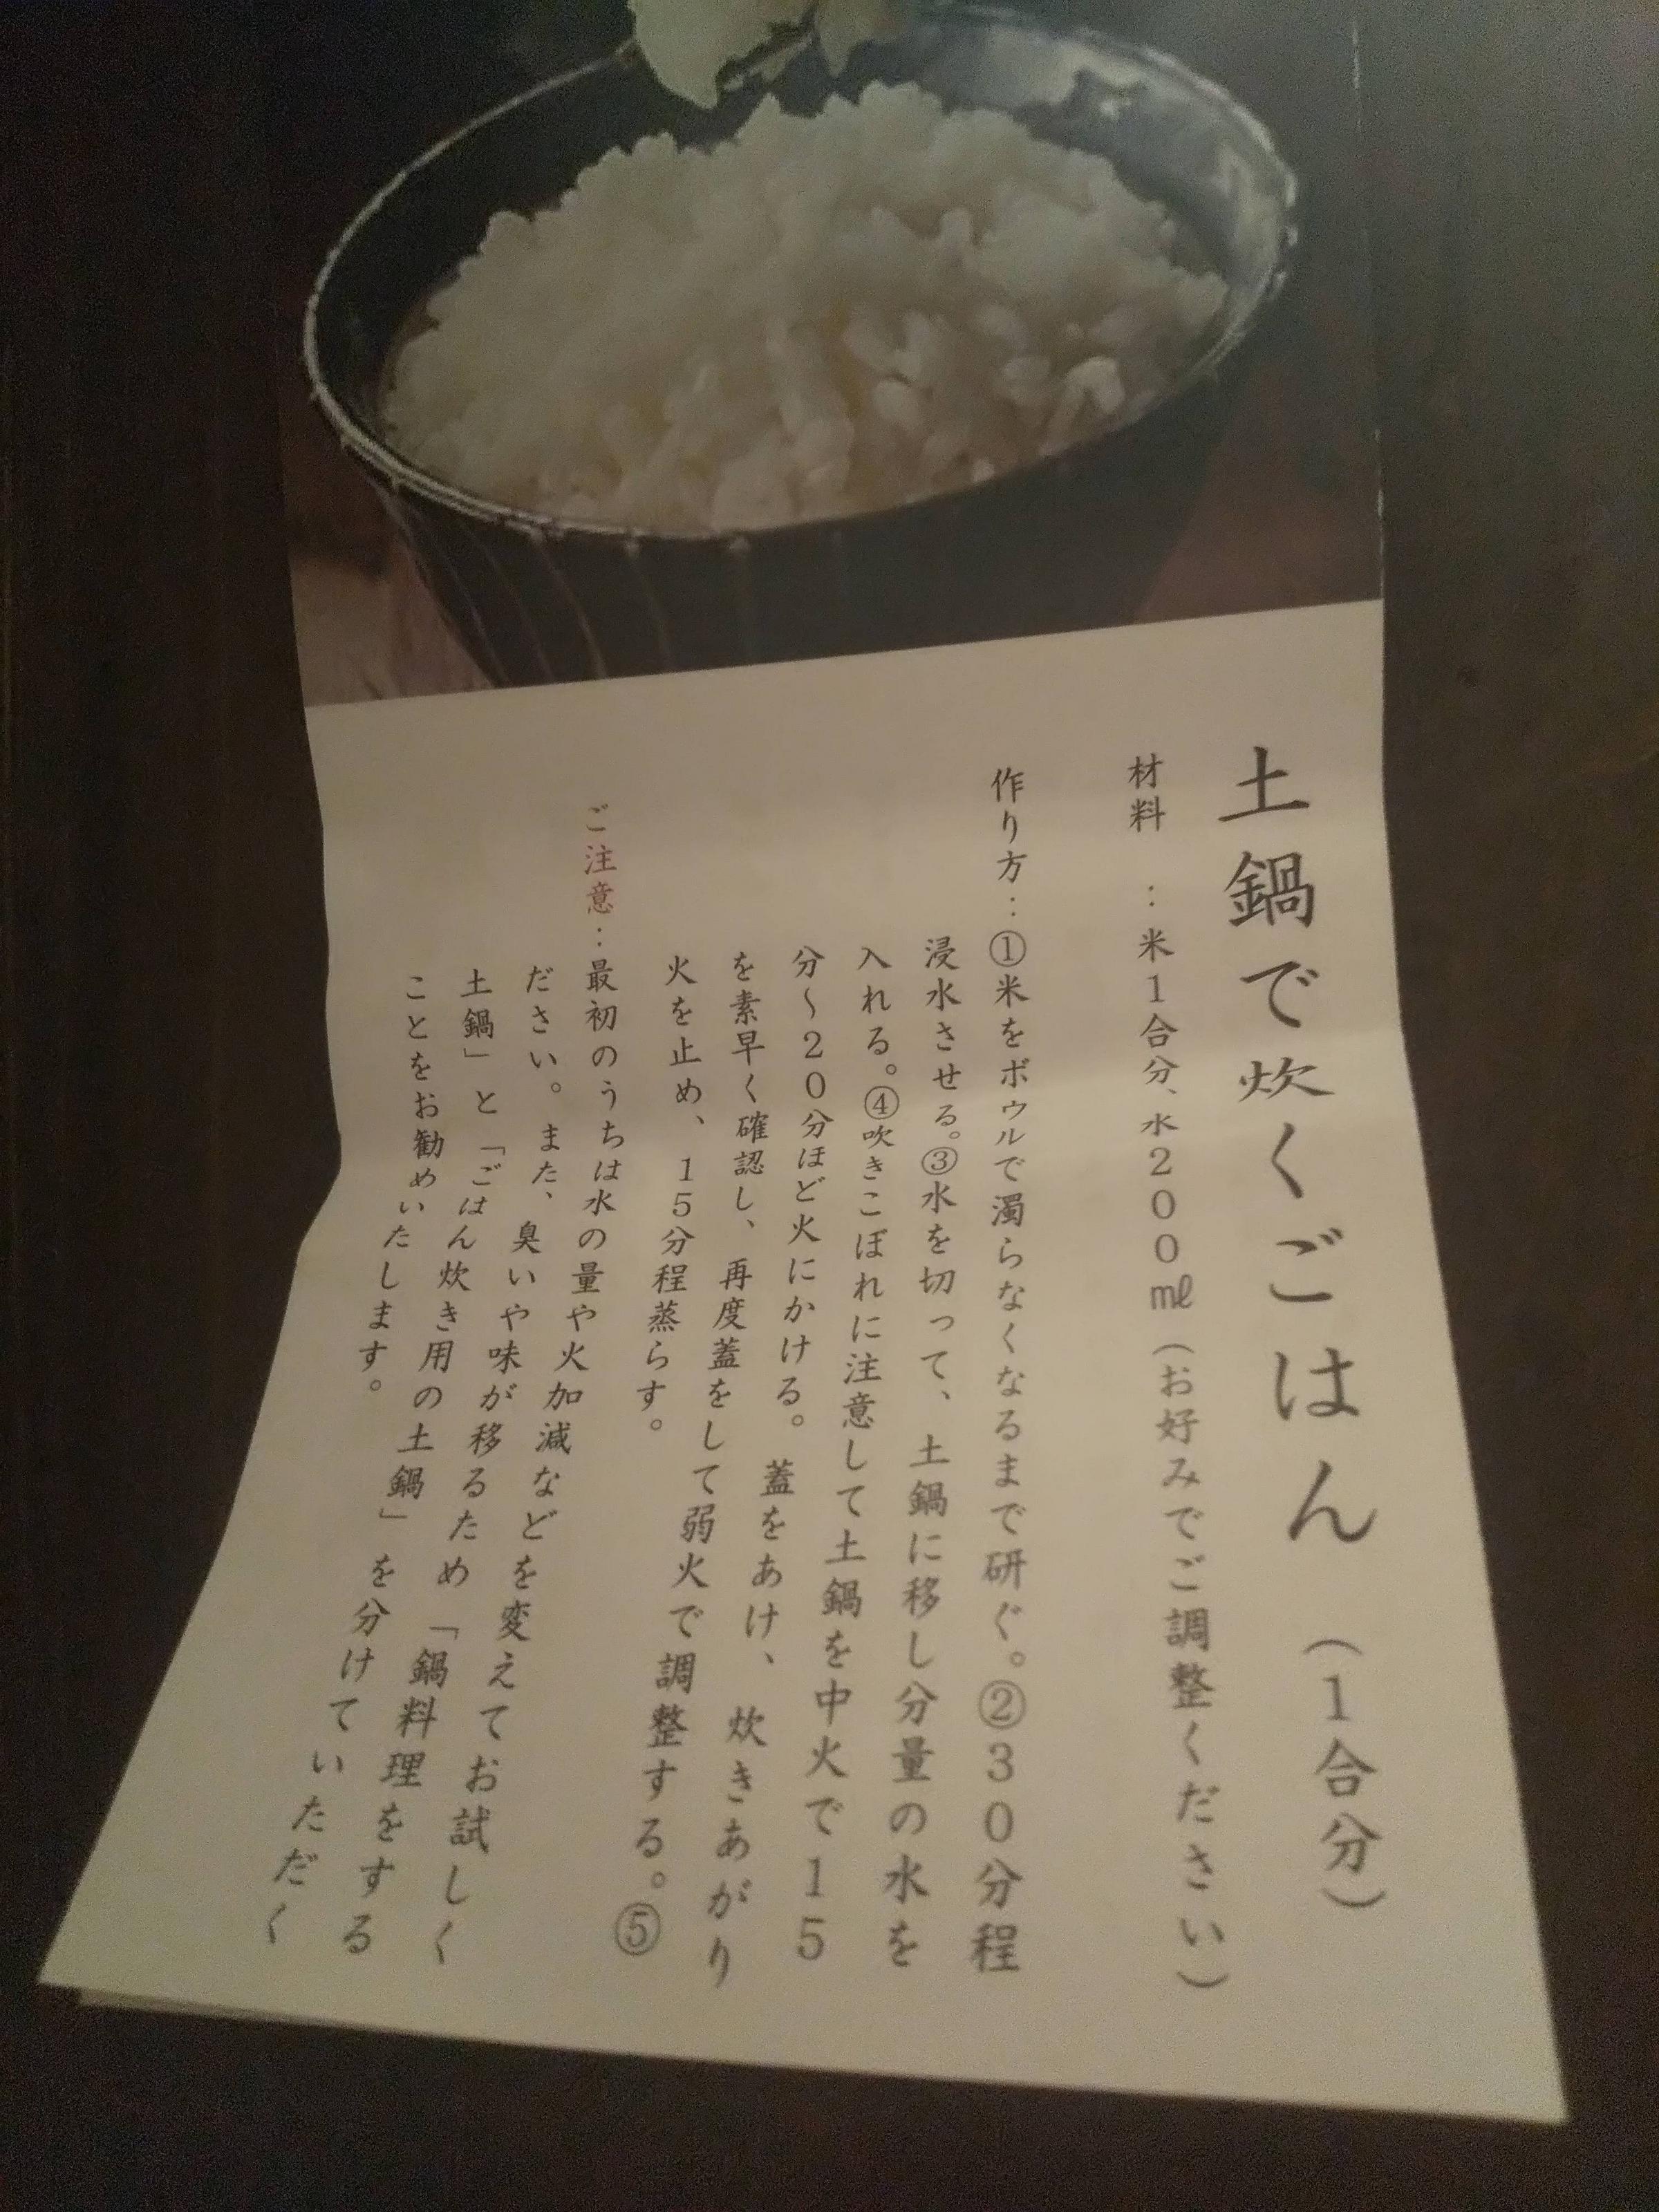 土鍋で炊くごはん （1合分）
材料 ：米1合分、水200㎖（お好みでご調整ください）
作り方：①米をボウルで濁らなくなるまで研ぐ。②30分程
浸水させる。③水を切って、土鍋に移し分量の水を
入れる。④吹きこぼれに注意して土鍋を中火で15
分～20分ほど火にかける。蓋をあけ、炊きあがり
を素早く確認し、再度蓋をして弱火で調整する。⑤
火を止め、15分程蒸らす。
ご注意：最初のうちは水の量や火加減などを変えてお試しく
ださい。また、臭いや味が移るため「鍋料理をする
土鍋」と「ごはん炊き用の土鍋」を分けていただく
ことをお勧めいたします。